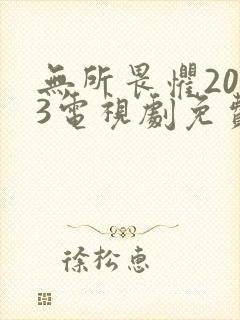 無所畏懼20
3電視劇免費
徐松惠